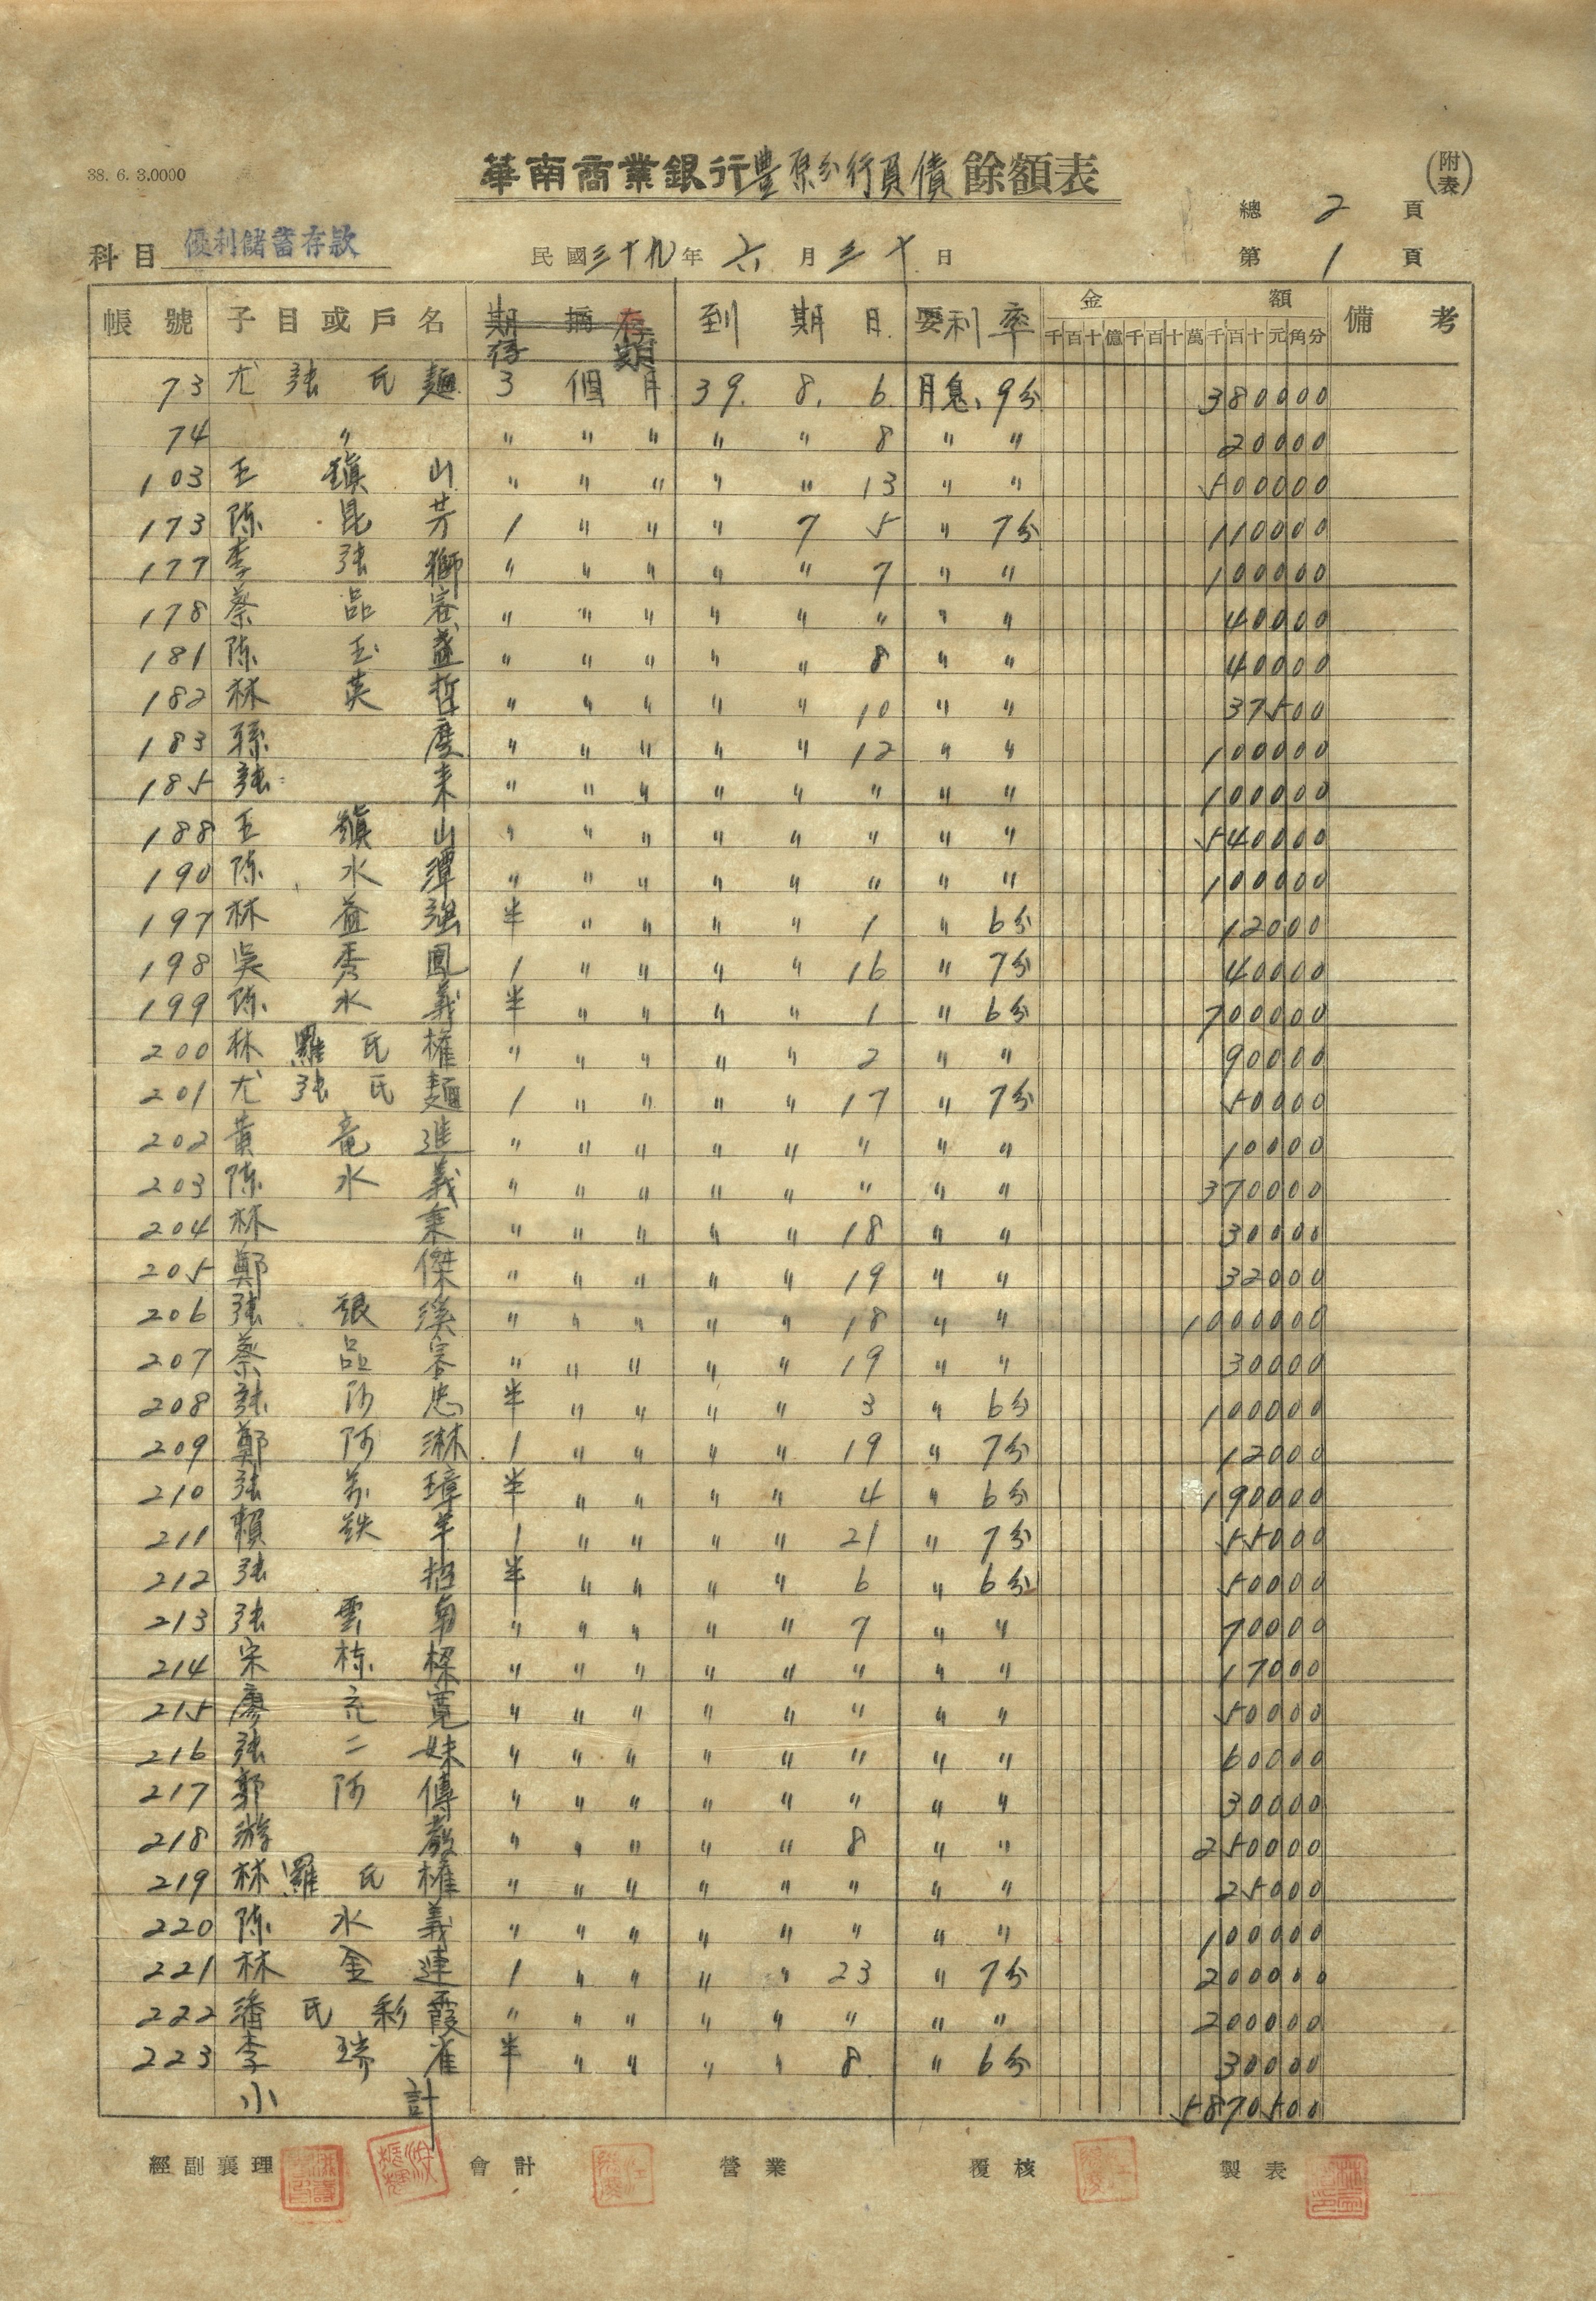 38. 6. 3.0000
華南商業銀行豐原分行負債餘額表
(附表)
總 2 頁
科目 優利儲蓄存款 民國三十九年 六 月 三十 日 第 1 頁
帳號 子目或戶名 存期 到期日 要利率 金額 備考
千百十億千百十萬千百十元角分
73 尤張氏麵 3 個月 39. 8. 6 月息 9分 380000
74 〃 〃 〃 〃 〃 〃 8 〃 〃 20000
103 王鎮山 〃 〃 〃 〃 〃 13 〃 〃 500000
173 陈昆芳 1 〃 〃 〃 7 5 〃 7分 110000
177 李張獅 〃 〃 〃 〃 〃 7 〃 〃 100000
178 蔡品容 〃 〃 〃 〃 〃 〃 〃 〃 40000
181 陈玉益 〃 〃 〃 〃 〃 8 〃 〃 40000
182 林英哲 〃 〃 〃 〃 〃 10 〃 〃 37500
183 孫慶 〃 〃 〃 〃 〃 12 〃 〃 100000
185 張来 〃 〃 〃 〃 〃 〃 〃 〃 100000
188 王鎮山 〃 〃 〃 〃 〃 〃 〃 〃 540000
190 陈水潭 〃 〃 〃 〃 〃 〃 〃 〃 100000
197 林益強 半 〃 〃 〃 〃 1 〃 6分 12000
198 吳秀鳳 1 〃 〃 〃 〃 16 〃 7分 40000
199 陈水義 半 〃 〃 〃 〃 1 〃 6分 700000
200 林羅氏權 〃 〃 〃 〃 〃 2 〃 〃 90000
201 尤張氏麵 1 〃 〃 〃 〃 17 〃 7分 50000
202 黄竜進 〃 〃 〃 〃 〃 〃 〃 〃 10000
203 陈水義 〃 〃 〃 〃 〃 〃 〃 〃 370000
204 林 〃 〃 〃 〃 〃 18 〃 〃 30000
205 鄭傑 〃 〃 〃 〃 〃 19 〃 〃 32000
206 張銀溪 〃 〃 〃 〃 〃 18 〃 〃 1000000
207 蔡品容 〃 〃 〃 〃 〃 19 〃 〃 30000
208 張阿忠 半 〃 〃 〃 〃 3 〃 6分 100000
209 鄭阿淋 1 〃 〃 〃 〃 19 〃 7分 12000
210 張芳璋 半 〃 〃 〃 〃 4 〃 6分 190000
211 賴鉄羊 1 〃 〃 〃 〃 21 〃 7分 55000
212 張招 半 〃 〃 〃 〃 6 〃 6分 50000
213 張雲 〃 〃 〃 〃 〃 7 〃 〃 70000
214 宋栋樑 〃 〃 〃 〃 〃 〃 〃 〃 17000
215 廖充寬 〃 〃 〃 〃 〃 〃 〃 〃 50000
216 張二妹 〃 〃 〃 〃 〃 〃 〃 〃 60000
217 郭阿傳 〃 〃 〃 〃 〃 〃 〃 〃 30000
218 游教 〃 〃 〃 〃 〃 8 〃 〃 250000
219 林羅氏權 〃 〃 〃 〃 〃 〃 〃 〃 25000
220 陈水義 〃 〃 〃 〃 〃 〃 〃 〃 100000
221 林金連 1 〃 〃 〃 〃 23 〃 7分 200000
222 潘氏彩霞 〃 〃 〃 〃 〃 〃 〃 〃 200000
223 李瑞雀 半 〃 〃 〃 〃 8 〃 6分 30000
小計 5870500
經副襄理 會計 營業 覆核 製表